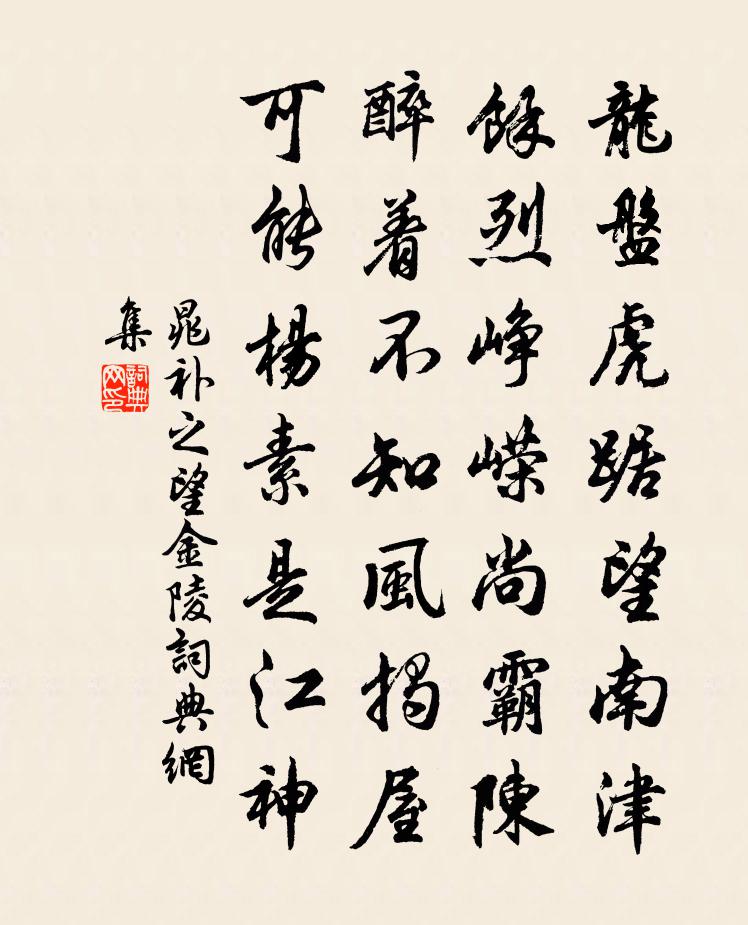 龍盤虎踞望南津
餘烈崢嶸尚霸陳
醉着不知風揭屋
可能楊素是江神
晁補之望金陵詞典網
集
詞典网印